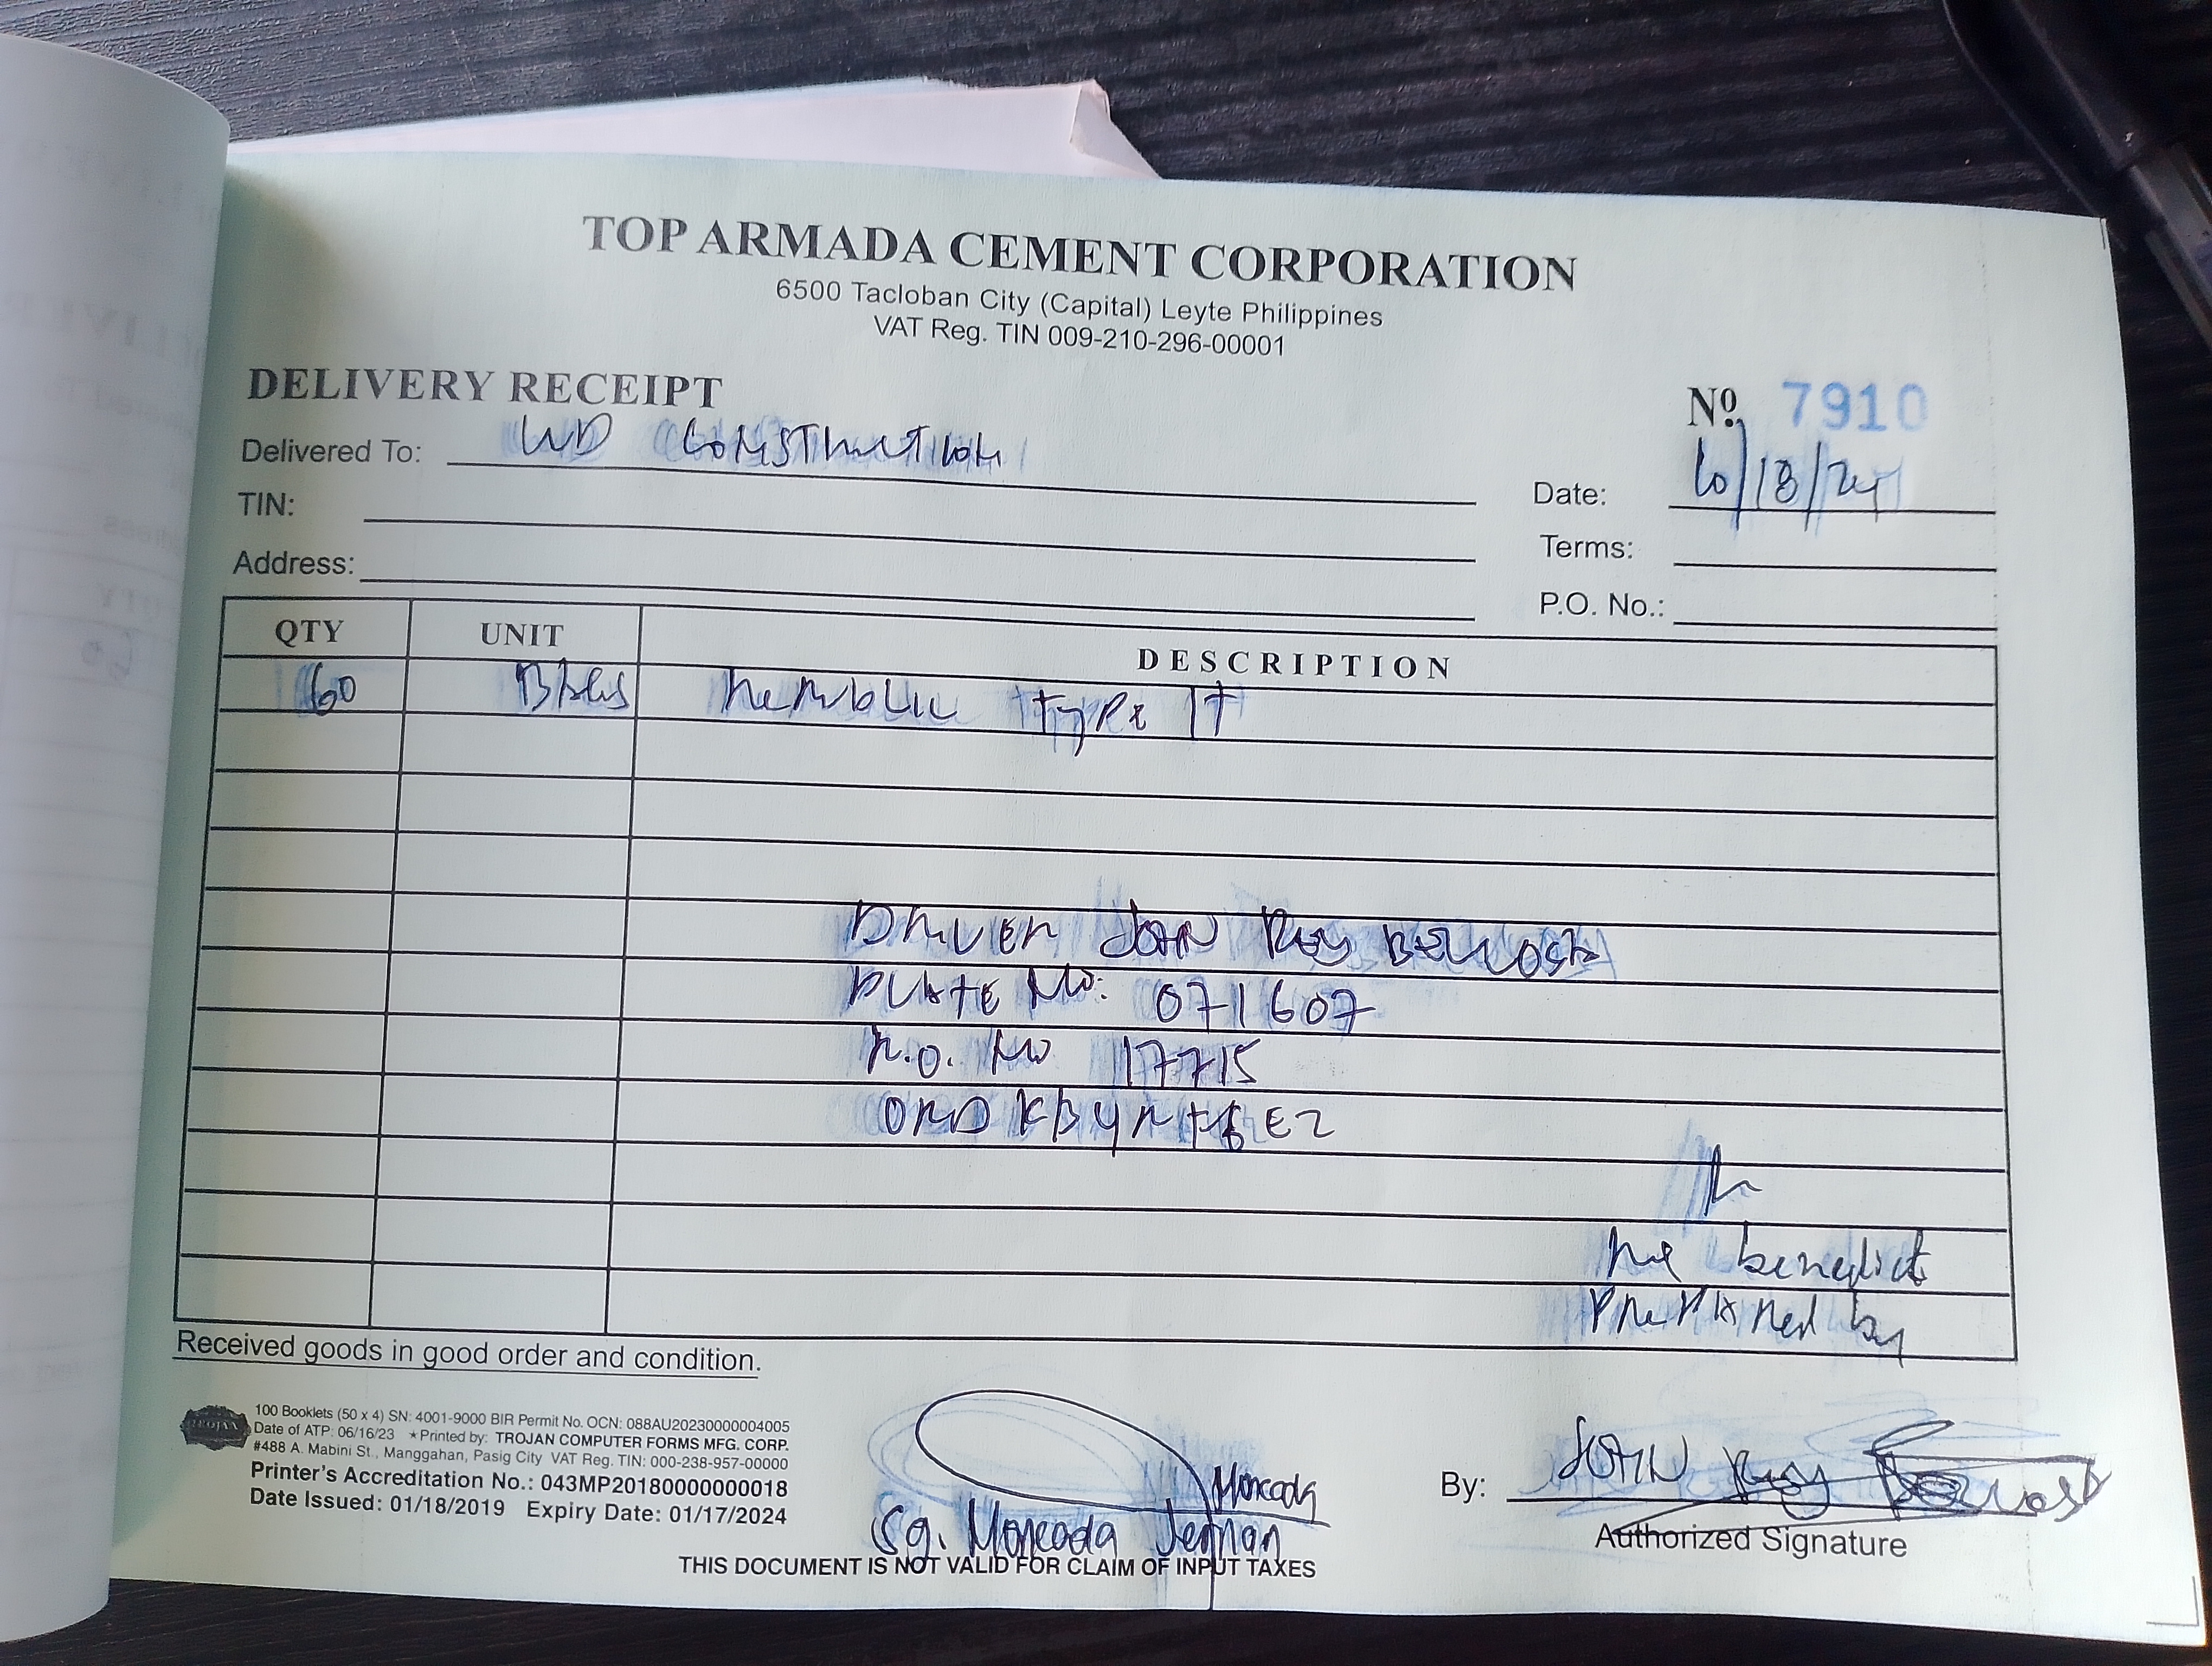 TOP ARMADA CEMENT CORPORATION
6500 Tacloban City (Capital) Leyte Philippines
VAT Reg. TIN 009-210-296-00001
DELIVERY RECEIPT
Nº. 7910
Delivered To: WD CONSTRUCTION
Date: 10/18/24
TIN:
Terms:
Address:
P.O. No.:
QTY UNIT DESCRIPTION
60 BAGS REPUBLIC TYPE 1T
DRIVER JOHN REY
PLATE NO: 071607
NO 17715
benedict
PREPARED by
Received goods in good order and condition.
100 Booklets (50 x 4) SN: 4001-9000 BIR Permit No. OCN: 088AU20230000004005
Date of ATP: 06/16/23 ★Printed by: TROJAN COMPUTER FORMS MFG. CORP.
#488 A. Mabini St., Manggahan, Pasig City VAT Reg. TIN: 000-238-957-00000
Printer's Accreditation No.: 043MP20180000000018
Date Issued: 01/18/2019 Expiry Date: 01/17/2024
TROJAN
Moncada
Sg. Moncada Jernan
By: JOHN Rey
Authorized Signature
THIS DOCUMENT IS NOT VALID FOR CLAIM OF INPUT TAXES